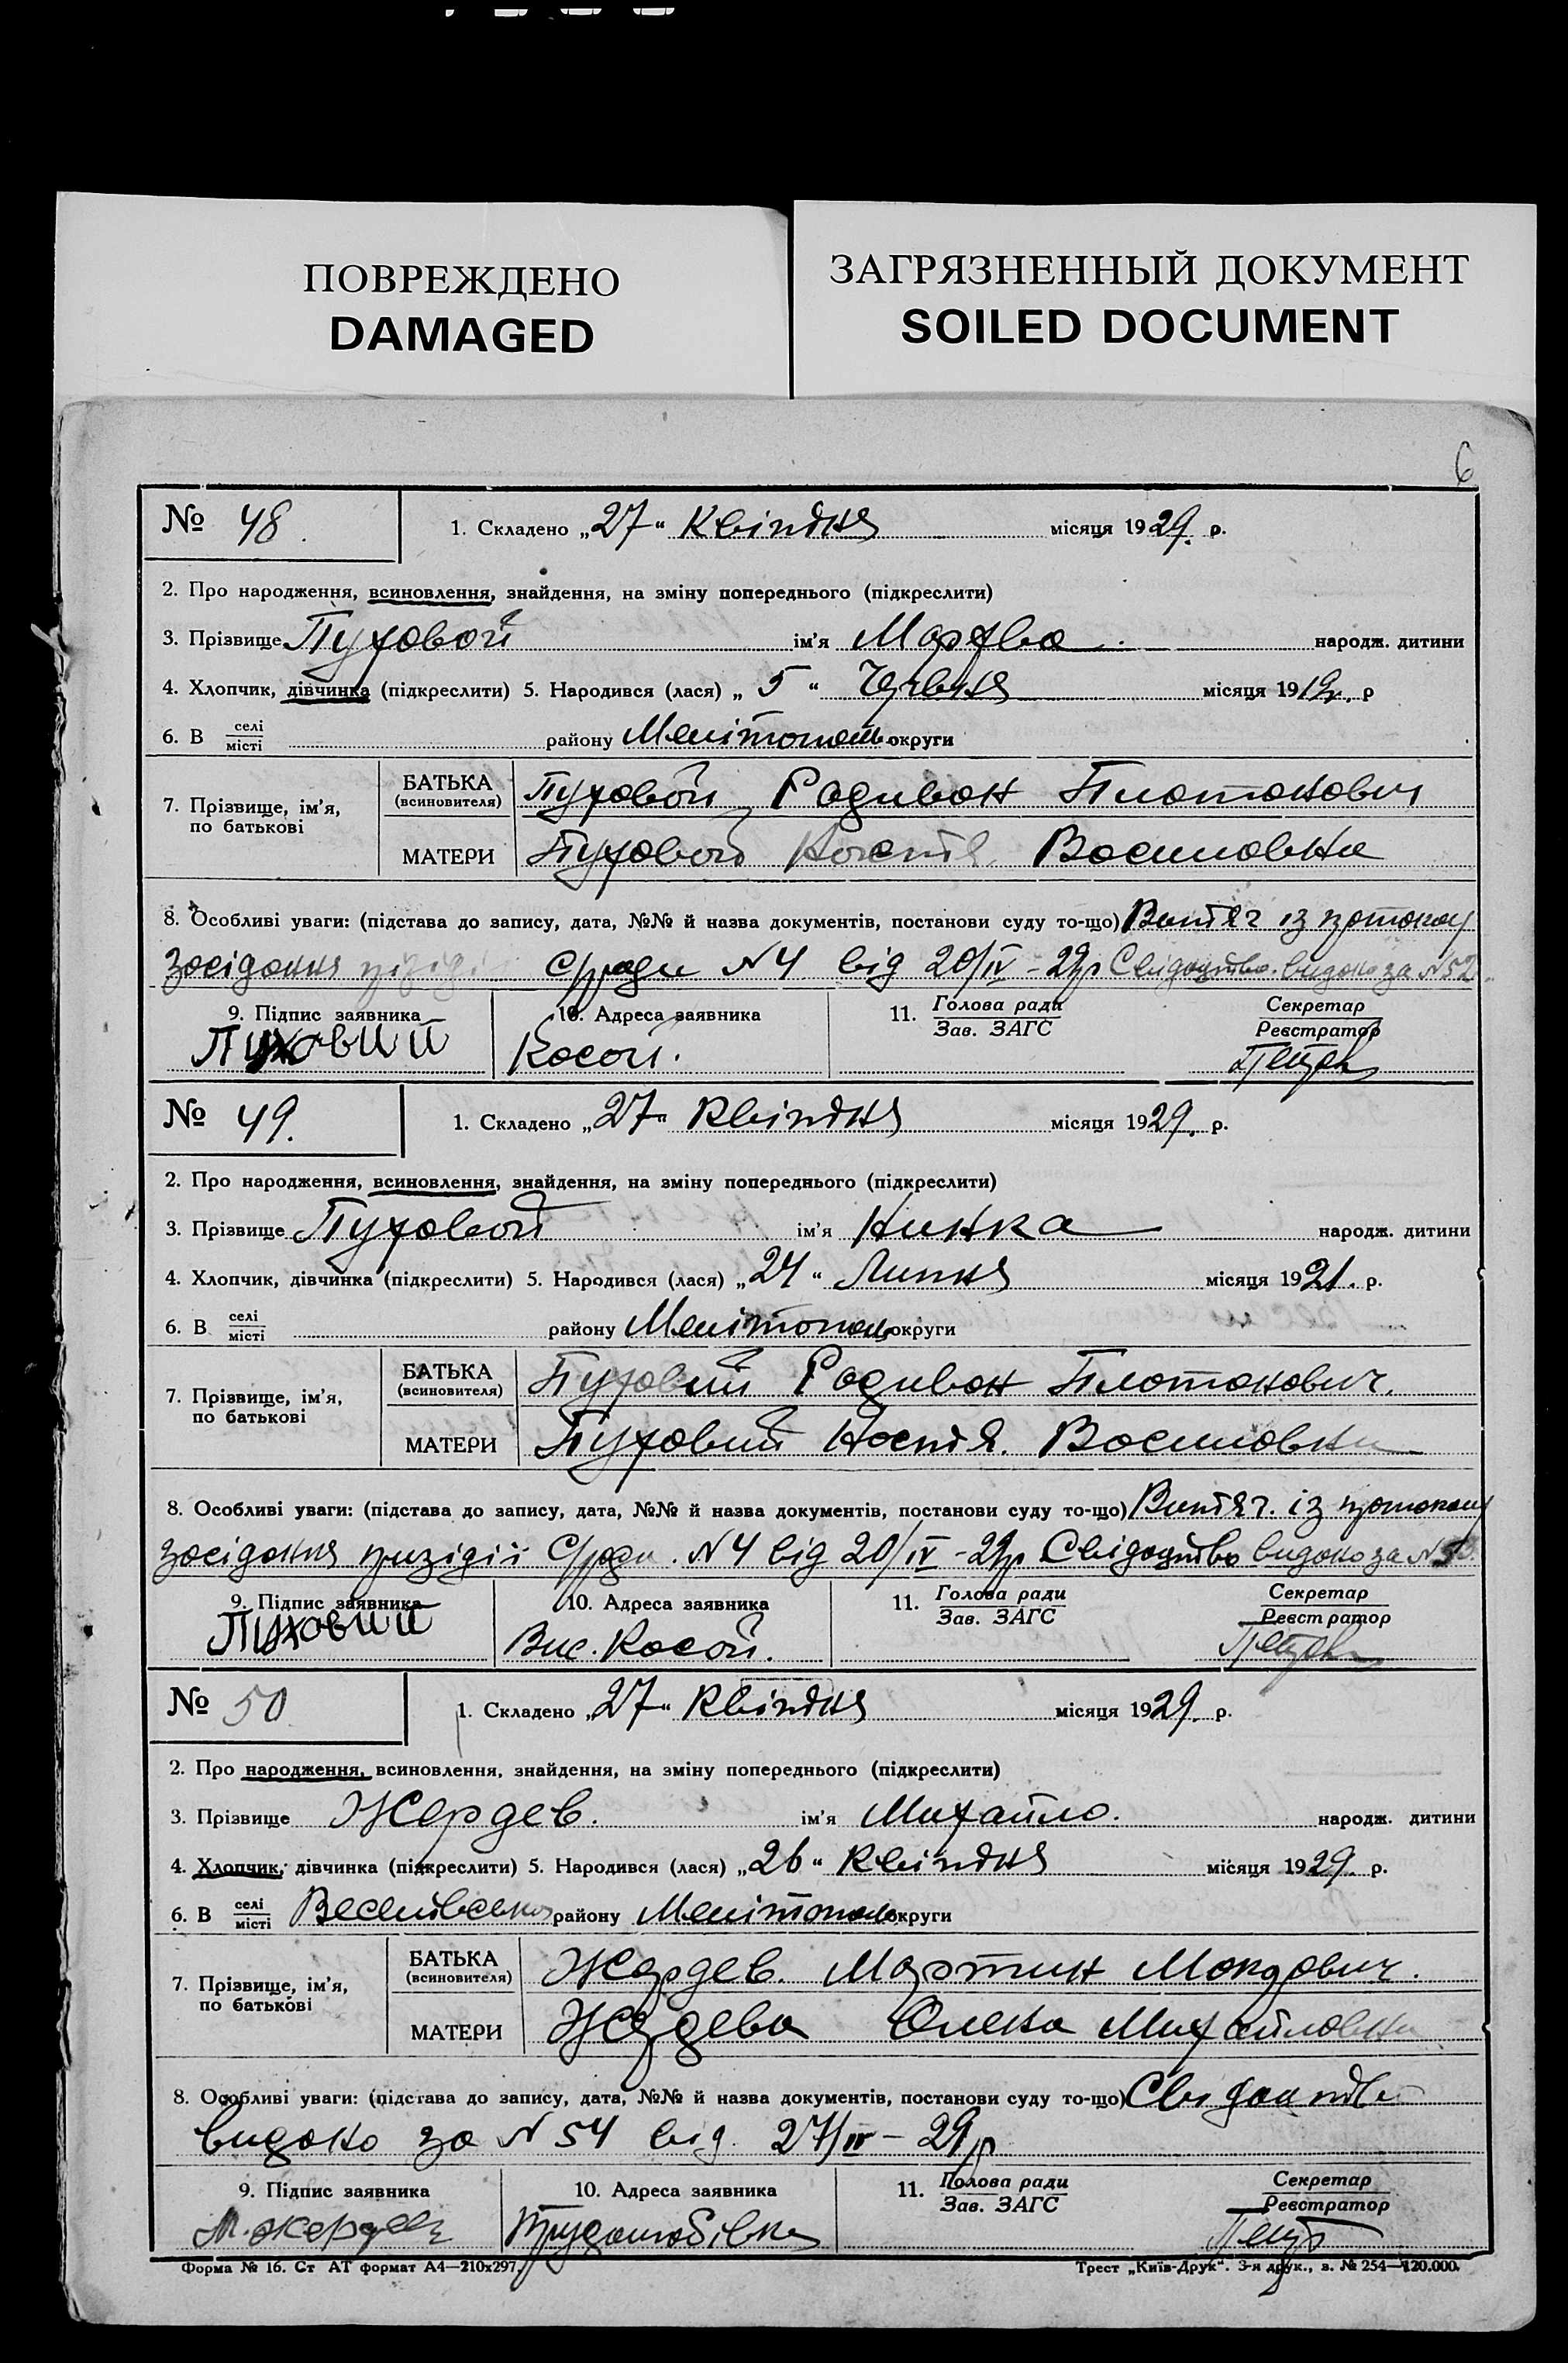 ПОВРЕЖДЕНО
DAMAGED
ЗАГРЯЗНЕННЫЙ ДОКУМЕНТ
SOILED DOCUMENT
6
№ 48. 1. Складено „27“ Квітня місяця 1929. р.
2. Про народження, всиновлення, знайдення, на зміну попереднього (підкреслити)
3. Прізвище Пуховой ім'я Марфва народж. дитини
4. Хлопчик, дівчинка (підкреслити) 5. Народився (лася) „5“ Червня місяця 1912. р
6. В селі місті району Мелітополь округи
7. Прізвище, ім'я, по батькові
БАТЬКА (всиновителя) Пуховой Радивон Платонович
МАТЕРИ Пуховой Настя Василовна
8. Особливі уваги: (підстава до запису, дата, №№ й назва документів, постанови суду то-що) Витяг із протоколу
засідання С/ради N 4 від 20/IV - 29р Свідоцтво видано за N 52
9. Підпис заявника 10. Адреса заявника 11. Голова ради Зав. ЗАГС Секретар Реєстратор
Пуховий Косой.
№ 49. 1. Складено „27“ Квітня місяця 1929. р.
2. Про народження, всиновлення, знайдення, на зміну попереднього (підкреслити)
3. Прізвище Пуховой ім'я Нинка народж. дитини
4. Хлопчик, дівчинка (підкреслити) 5. Народився (лася) „24“ Липня місяця 1921. р.
6. В селі місті району Мелітополь округи
7. Прізвище, ім'я, по батькові
БАТЬКА (всиновителя) Пуховий Радивон Платонович.
МАТЕРИ Пуховий Настя. Василовна
8. Особливі уваги: (підстава до запису, дата, №№ й назва документів, постанови суду то-що) Витяг. із протоколу
засідання призідії С/ради. N 4 від 20/IV - 29р Свідоцтво видано за N 53.
9. Підпис заявника 10. Адреса заявника 11. Голова ради Зав. ЗАГС Секретар Реєстратор
Пуховий Вис. Косой.
№ 50 1. Складено „27“ Квітня місяця 1929. р.
2. Про народження, всиновлення, знайдення, на зміну попереднього (підкреслити)
3. Прізвище Жердев. ім'я Михайло. народж. дитини
4. Хлопчик, дівчинка (підкреслити) 5. Народився (лася) „26“ Квітня місяця 1929. р.
6. В селі місті Веселівського району Мелітополь округи
7. Прізвище, ім'я, по батькові
БАТЬКА (всиновителя) Жердев. Мартин Макарович.
МАТЕРИ Жердева Олена Михайловна
8. Особливі уваги: (підстава до запису, дата, №№ й назва документів, постанови суду то-що) Свідоцтво
видано за N 54 від 27/IV - 29р
9. Підпис заявника 10. Адреса заявника 11. Голова ради Зав. ЗАГС Секретар Реєстратор
М. Жердев Трудолюбівка
Форма № 16. Ст АТ формат А4—210х297. Трест „Київ-Друк“. 3-я друк., з. № 254—120.000.